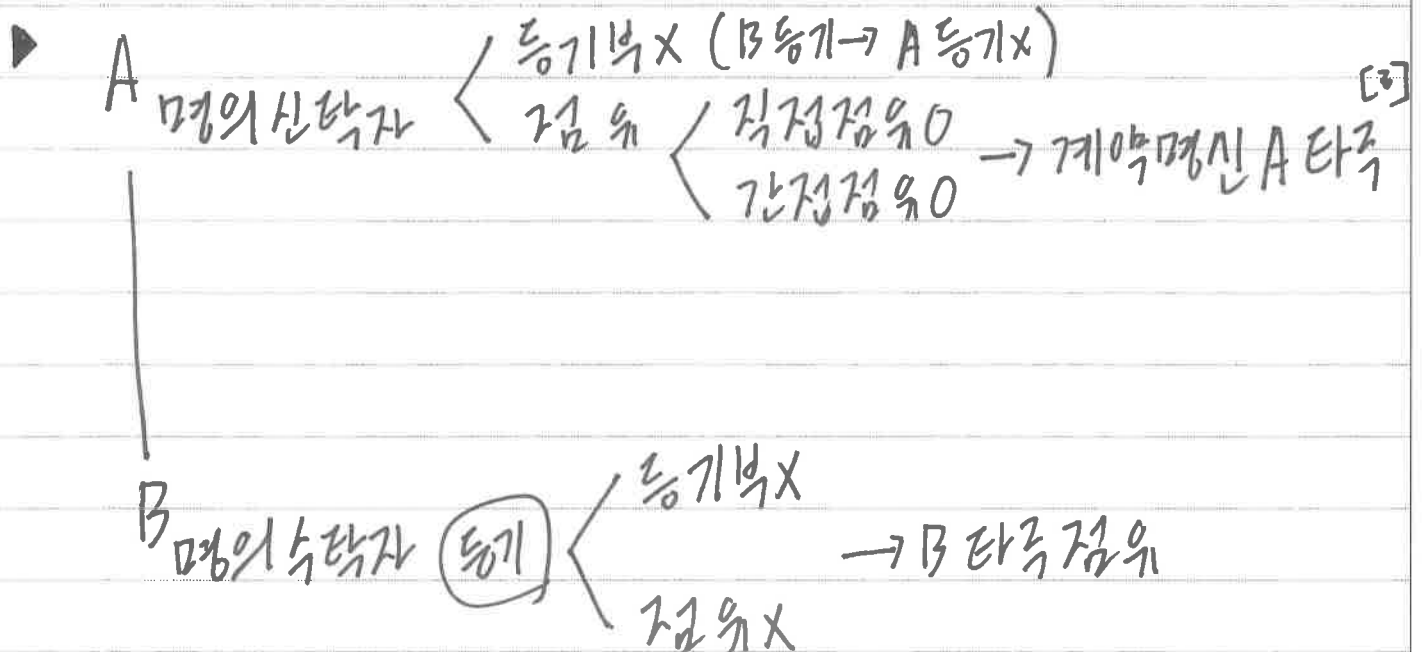 ▶ A 명의신탁자 < 등기부X (B등기→ A 등기X)
점유 < 직접점유O
간접점유O → 계약명신 A 타주
[3]
B 명의수탁자 (등기) < 등기부X
점유X
→ B 타주점유